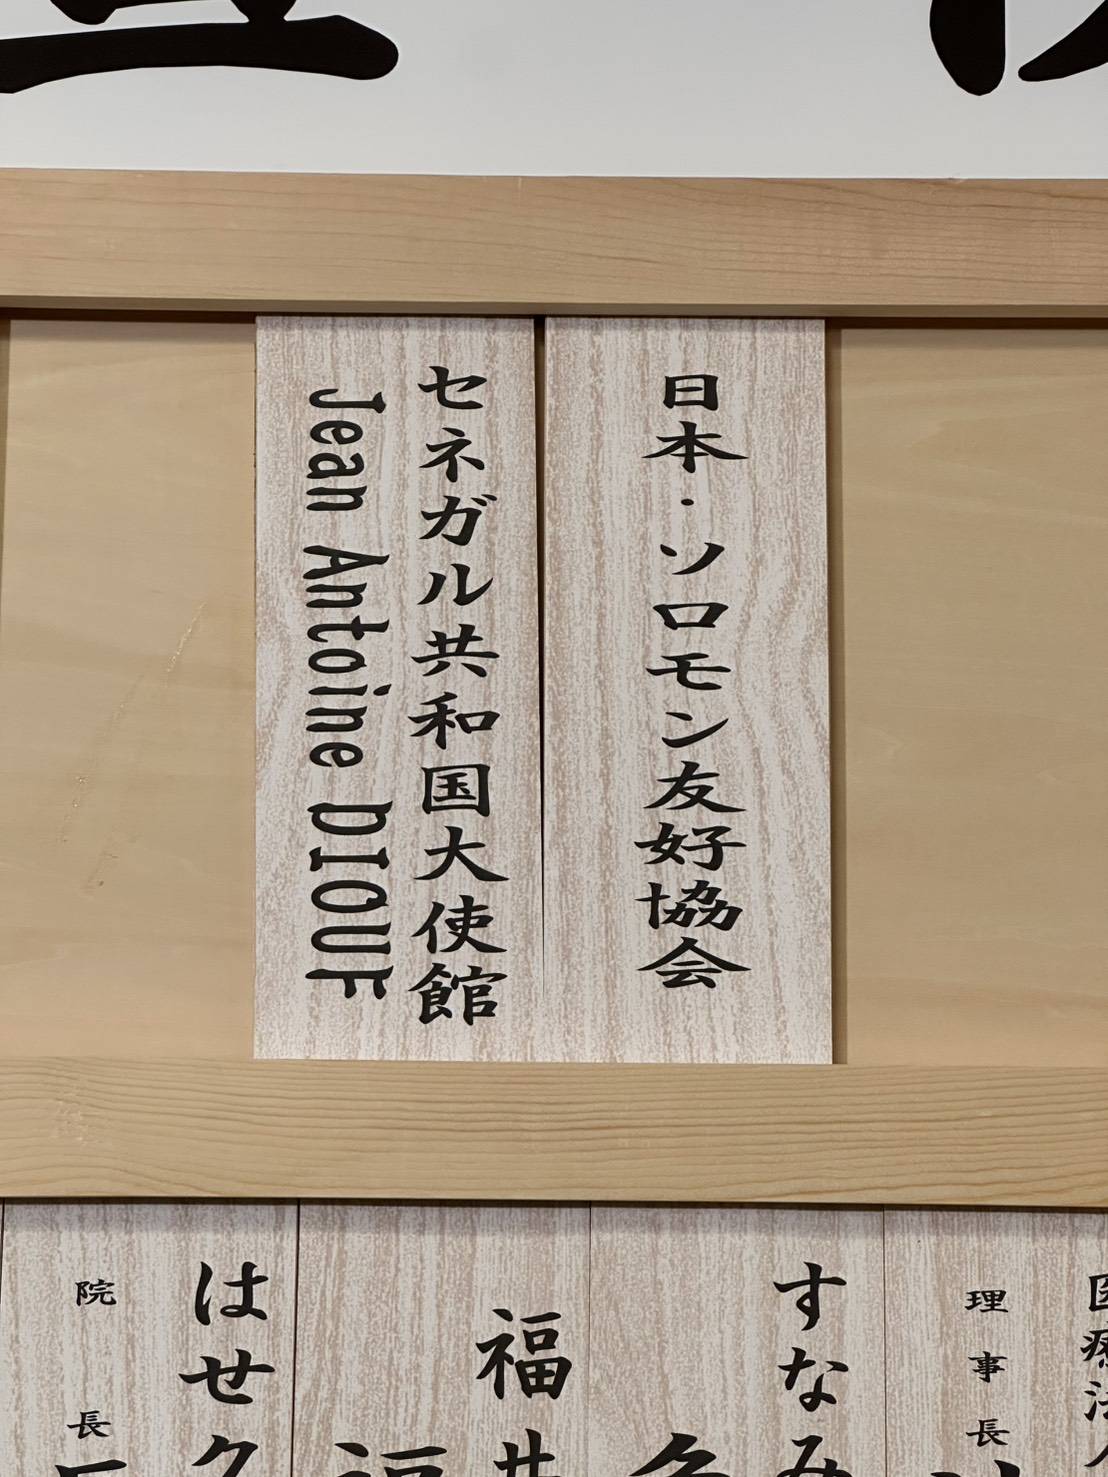 日本・ソロモン友好協会
セネガル共和国大使館
Jean Antoine DIOUF
医療法人
理事長
すなみ
福井
福
はせク
院長